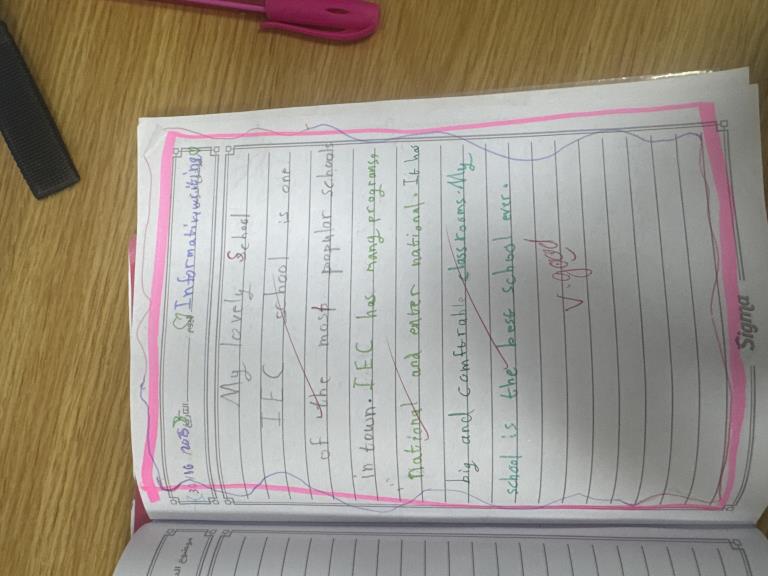 Informative writing
My lovely School
IEC school is one
of the most popular schools
in town. IEC has many programs.
National and enter national. It ha
big and comftrable classrooms. My
school is the best school ever.
V.good
Sigma